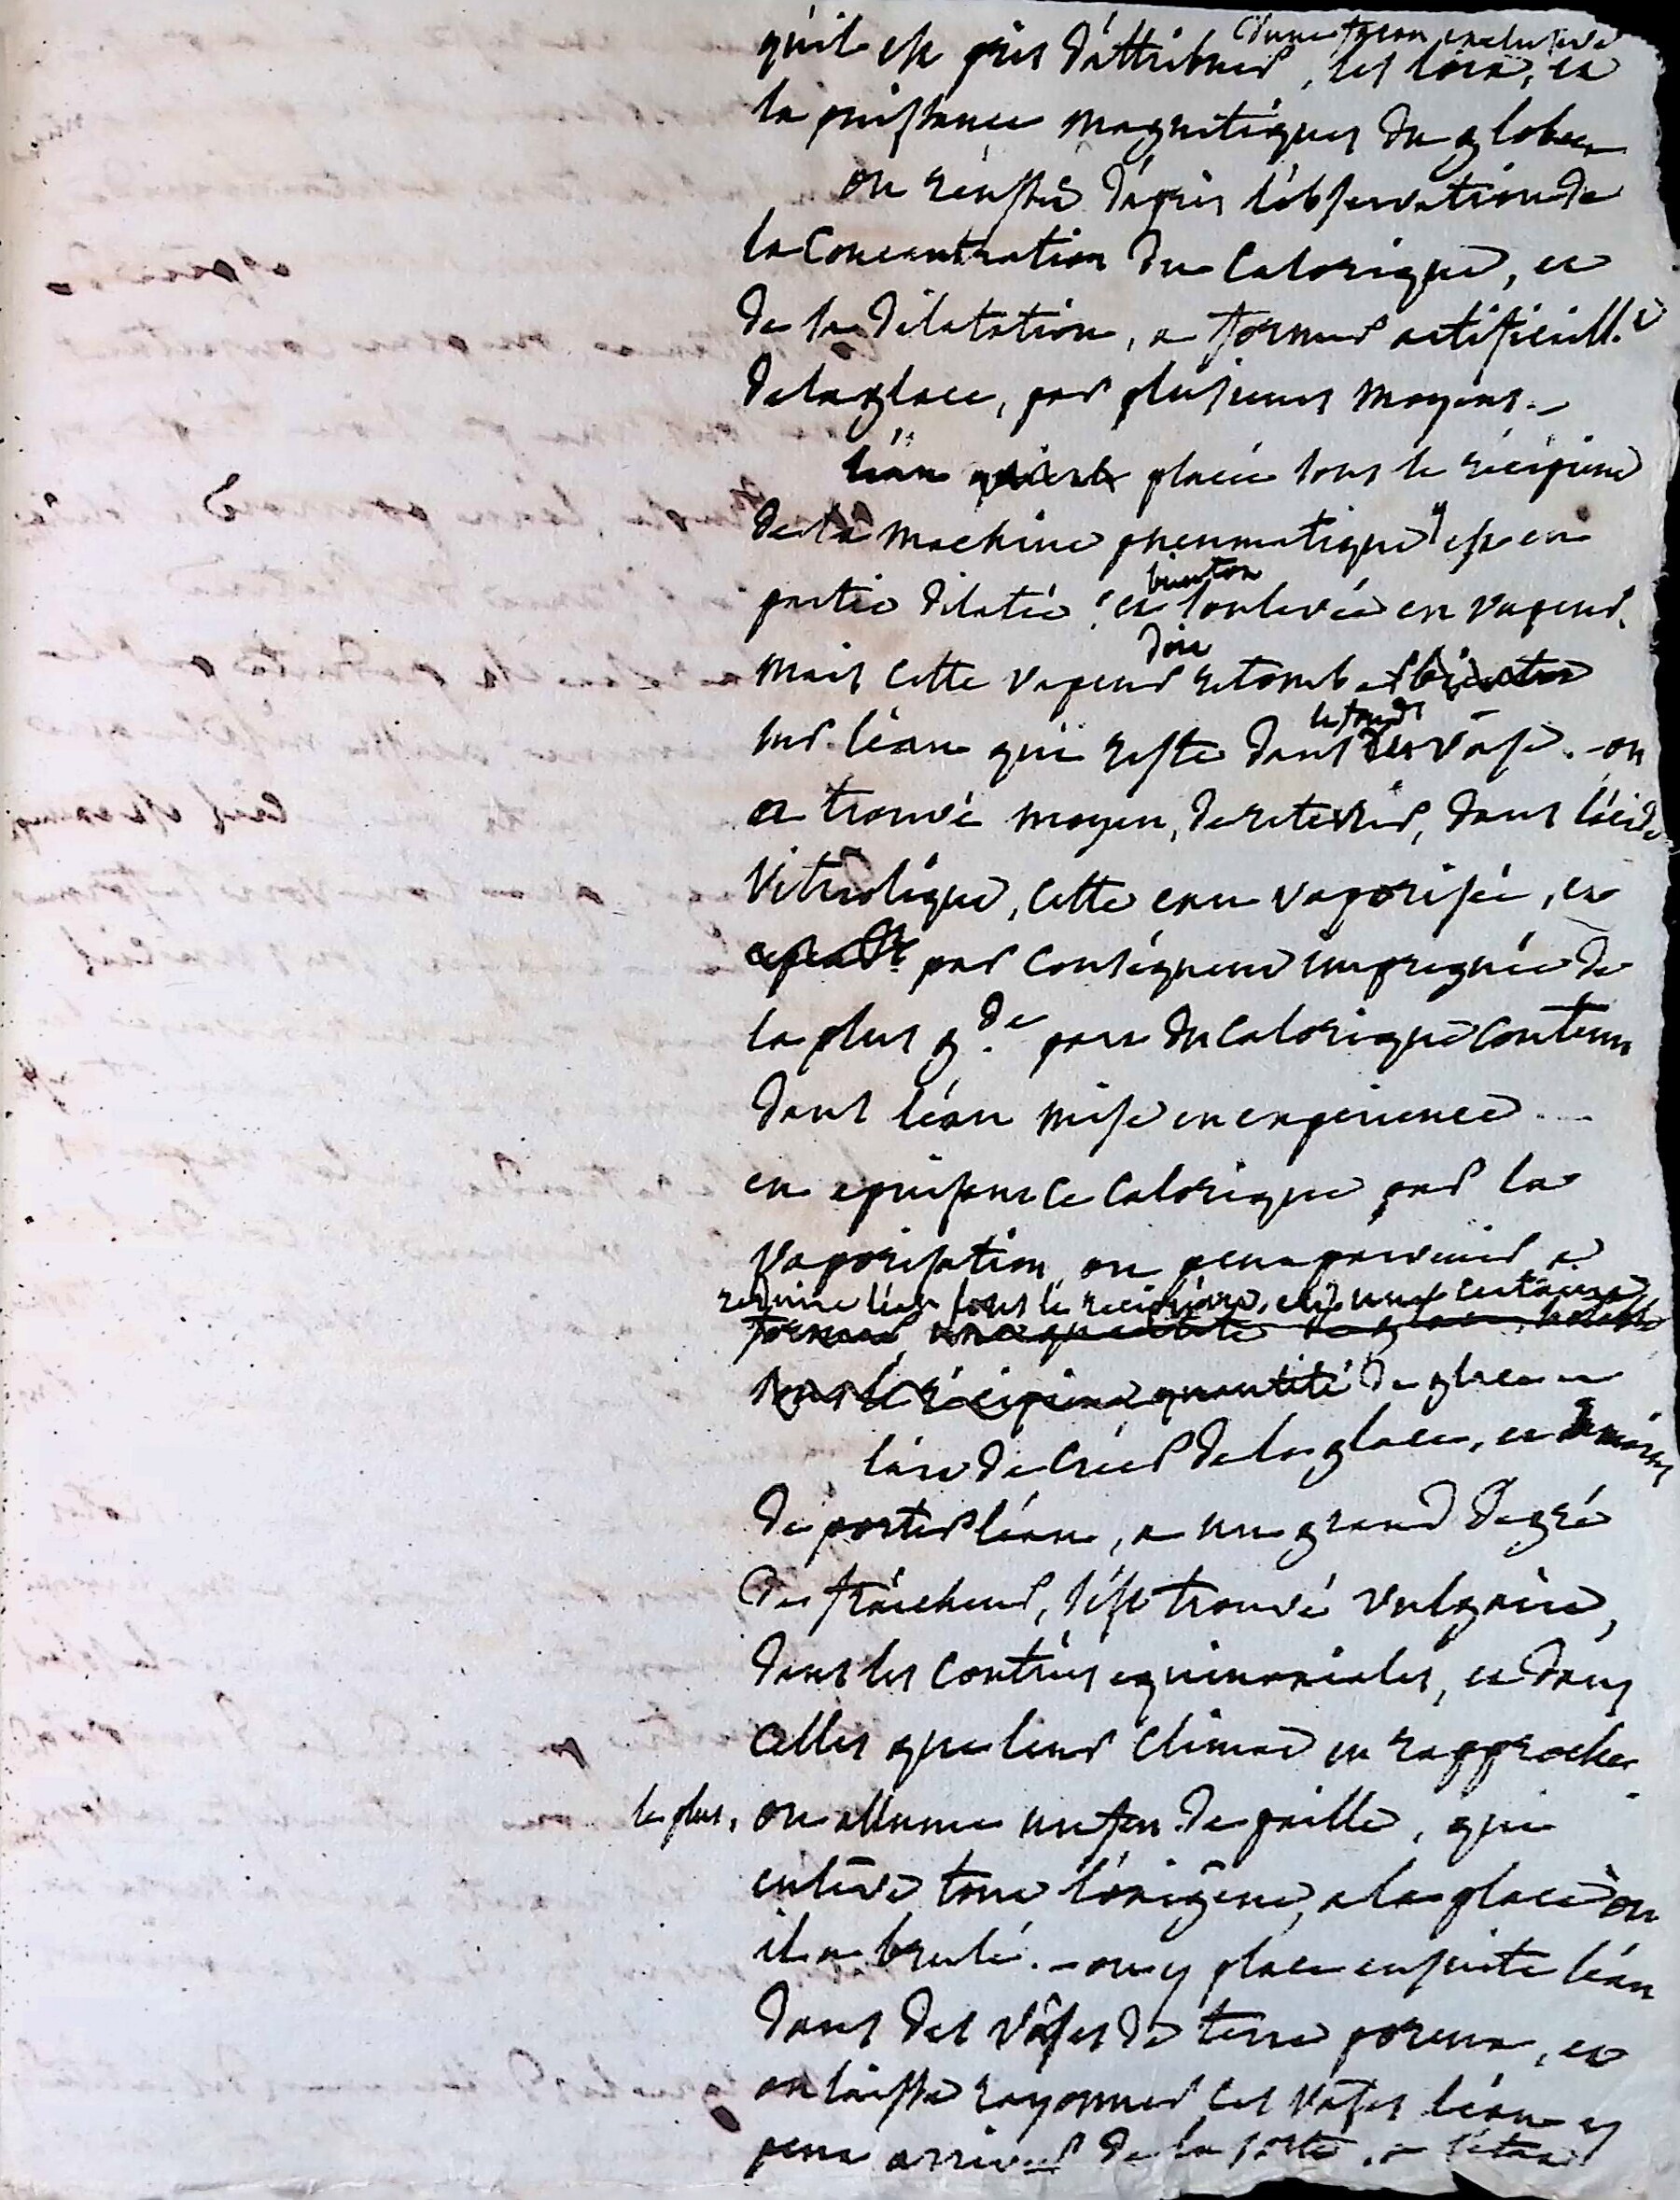 d'une façon exclusive
qu'il est pris d'attribuer, les loix, et
la puissance magnétiques du globe
on réussit d'après l'observation de
la Concentration du Calorique, et
de la dilatation, a former artificiell.t
de la glace, par plusieurs moyens. —
l'eau placée sous le récipient
de la machine pneumatique est en
partie dilatée, et bientôt soulevée en vapeur.
mais cette vapeur doit retomber bientôt
sur l'eau qui reste dans le fonds du vase. — on
a trouvé moyen, de retenir, dans l'acide
Vitriolique, cette eau vaporisée, et
par conséquent impregnée de
la plus g.de part du Calorique Contenu
dans l'eau mise en experience ...
en epuisant ce Calorique par la
vaporisation on peut parvenir à
reduire l'eau sous le recipient, en une certaine
former une quantité de glace
sous le récipient quantité de glace —
l'art de créer de la glace, et du moins
de porter l'eau, a un grand dégré
de fraîcheur, s'est trouvé vulgaire,
dans les contrées equinoxiales, et dans
celles que leur climat en rapproche
le plus, on allume un feu de paille, qui
enlève tout l'oxigène, a la place où
il a brulé. — on y place ensuite l'eau
dans des vases de terre poreux, et
on laisse rayonner ces vases l'eau y
peut arriver de la sorte, a l'état